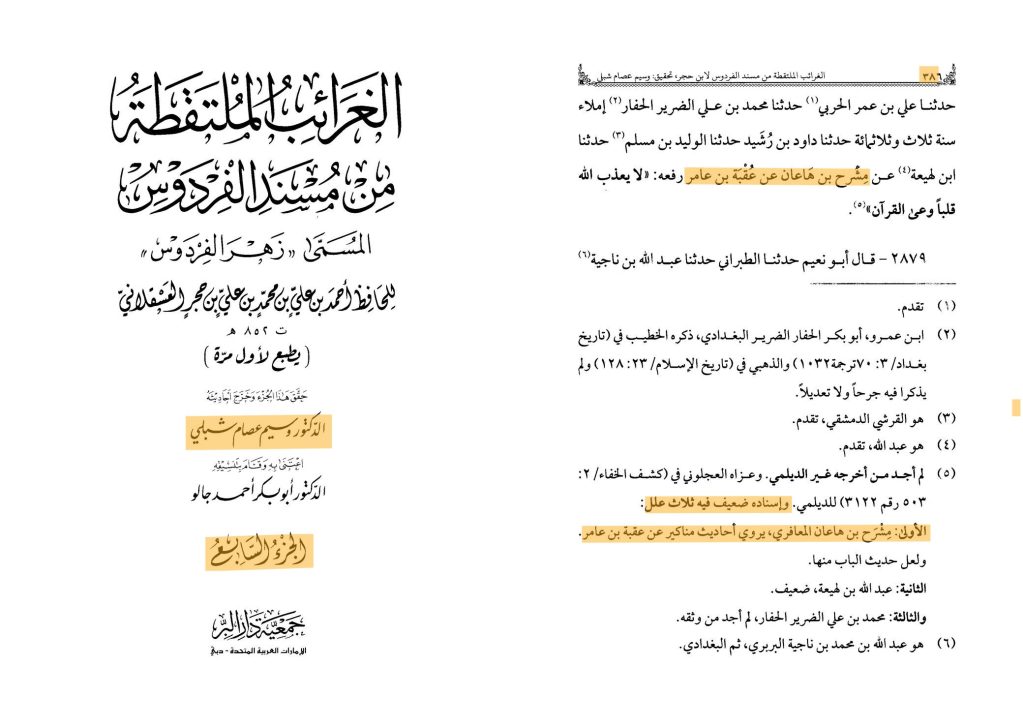 الغَرَائِبُ المُلْتَقَطَةُ
مِنْ مُسْنَدِ الفِرْدَوْسِ
المُسَمَّى «زَهْرَ الفِرْدَوْسِ»
لِلحَافِظِ أَحْمَدَ بنِ عَلِيِّ بنِ مُحَمَّدِ بنِ عَلِيِّ بنِ حَجَرٍ العَسْقَلَانِيِّ
ت ٨٥٢ هـ
(يطبع لأول مرّة)
حَقَّقَ هَذَا الجُزْءَ وَخَرَّجَ أَحَادِيثَهُ
الدّكتور وسيم عصام شبلي
اعْتَنَى بِهِ وَقَامَ بِتَنْسِيقِهِ
الدّكتور أبو بكر أحمد جالو
الجُزْءُ السَّابِعُ
جَمْعِيَّة دَارِ البِرِّ
الإمارات العربية المتحدة - دبيّ
الغرائب الملتقطة من مسند الفردوس لابن حجر، تحقيق: وسيم عصام شبلي
٣٨٦
حدثنا علي بن عمر الحربي(١) حدثنا محمد بن علي الضرير الحفار(٢) إملاء
سنة ثلاث وثلاثمائة حدثنا داود بن رُشَيد حدثنا الوليد بن مسلم(٣) حدثنا
ابن لهيعة(٤) عن مِشْرح بن هَاعان عن عُقْبَة بن عامر رفعه: «لا يعذب الله
قلباً وعىٰ القرآن»(٥).
٢٨٧٩ - قال أبو نعيم حدثنا الطبراني حدثنا عبد الله بن ناجية(٦)
(١) تقدم.
(٢) ابن عمرو، أبو بكر الحفار الضرير البغدادي، ذكره الخطيب في (تاريخ
بغداد/ ٣: ٧٠ترجمة١٠٣٢) والذهبي في (تاريخ الإسلام/ ٢٣: ١٢٨) ولم
يذكرا فيه جرحاً ولا تعديلاً.
(٣) هو القرشي الدمشقي، تقدم.
(٤) هو عبد الله، تقدم.
(٥) لم أجد من أخرجه غير الديلمي. وعزاه العجلوني في (كشف الخفاء/ ٢:
٥٠٣ رقم ٣١٢٢) للديلمي. وإسناده ضعيف فيه ثلاث علل:
الأولىٰ: مِشْرَح بن هاعان المعافري، يروي أحاديث مناكير عن عقبة بن عامر.
ولعل حديث الباب منها.
الثانية: عبد الله بن لهيعة، ضعيف.
والثالثة: محمد بن علي الضرير الحفار، لم أجد من وثقه.
(٦) هو عبد الله بن محمد بن ناجية البربري، ثم البغدادي.